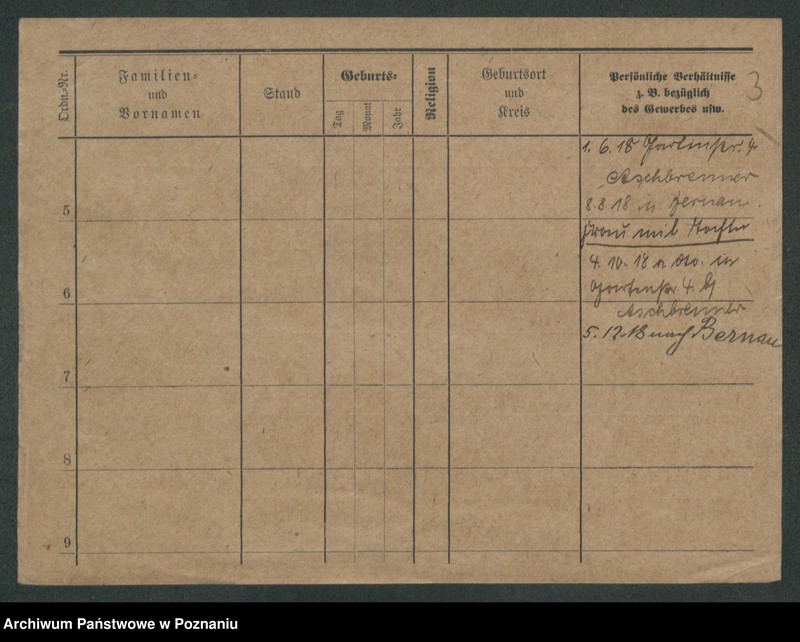 Ordn.-Nr.
Familien-
und
Vornamen
Stand
Geburts-
Tag
Monat
Jahr
Religion
Geburtsort
und
Kreis
Persönliche Verhältnisse
z. B. bezüglich
des Gewerbes usw.
3
1. 6. 18 Gartenstr. 4
Aschbrenner
8. 8. 18 n Bernau.
Frau mit Tochter
4. 10. 18 in
Gartenstr. 4. b/
Aschbrenner
5. 12. 18 nach Bernau
5
6
7
8
9
Archiwum Państwowe w Poznaniu